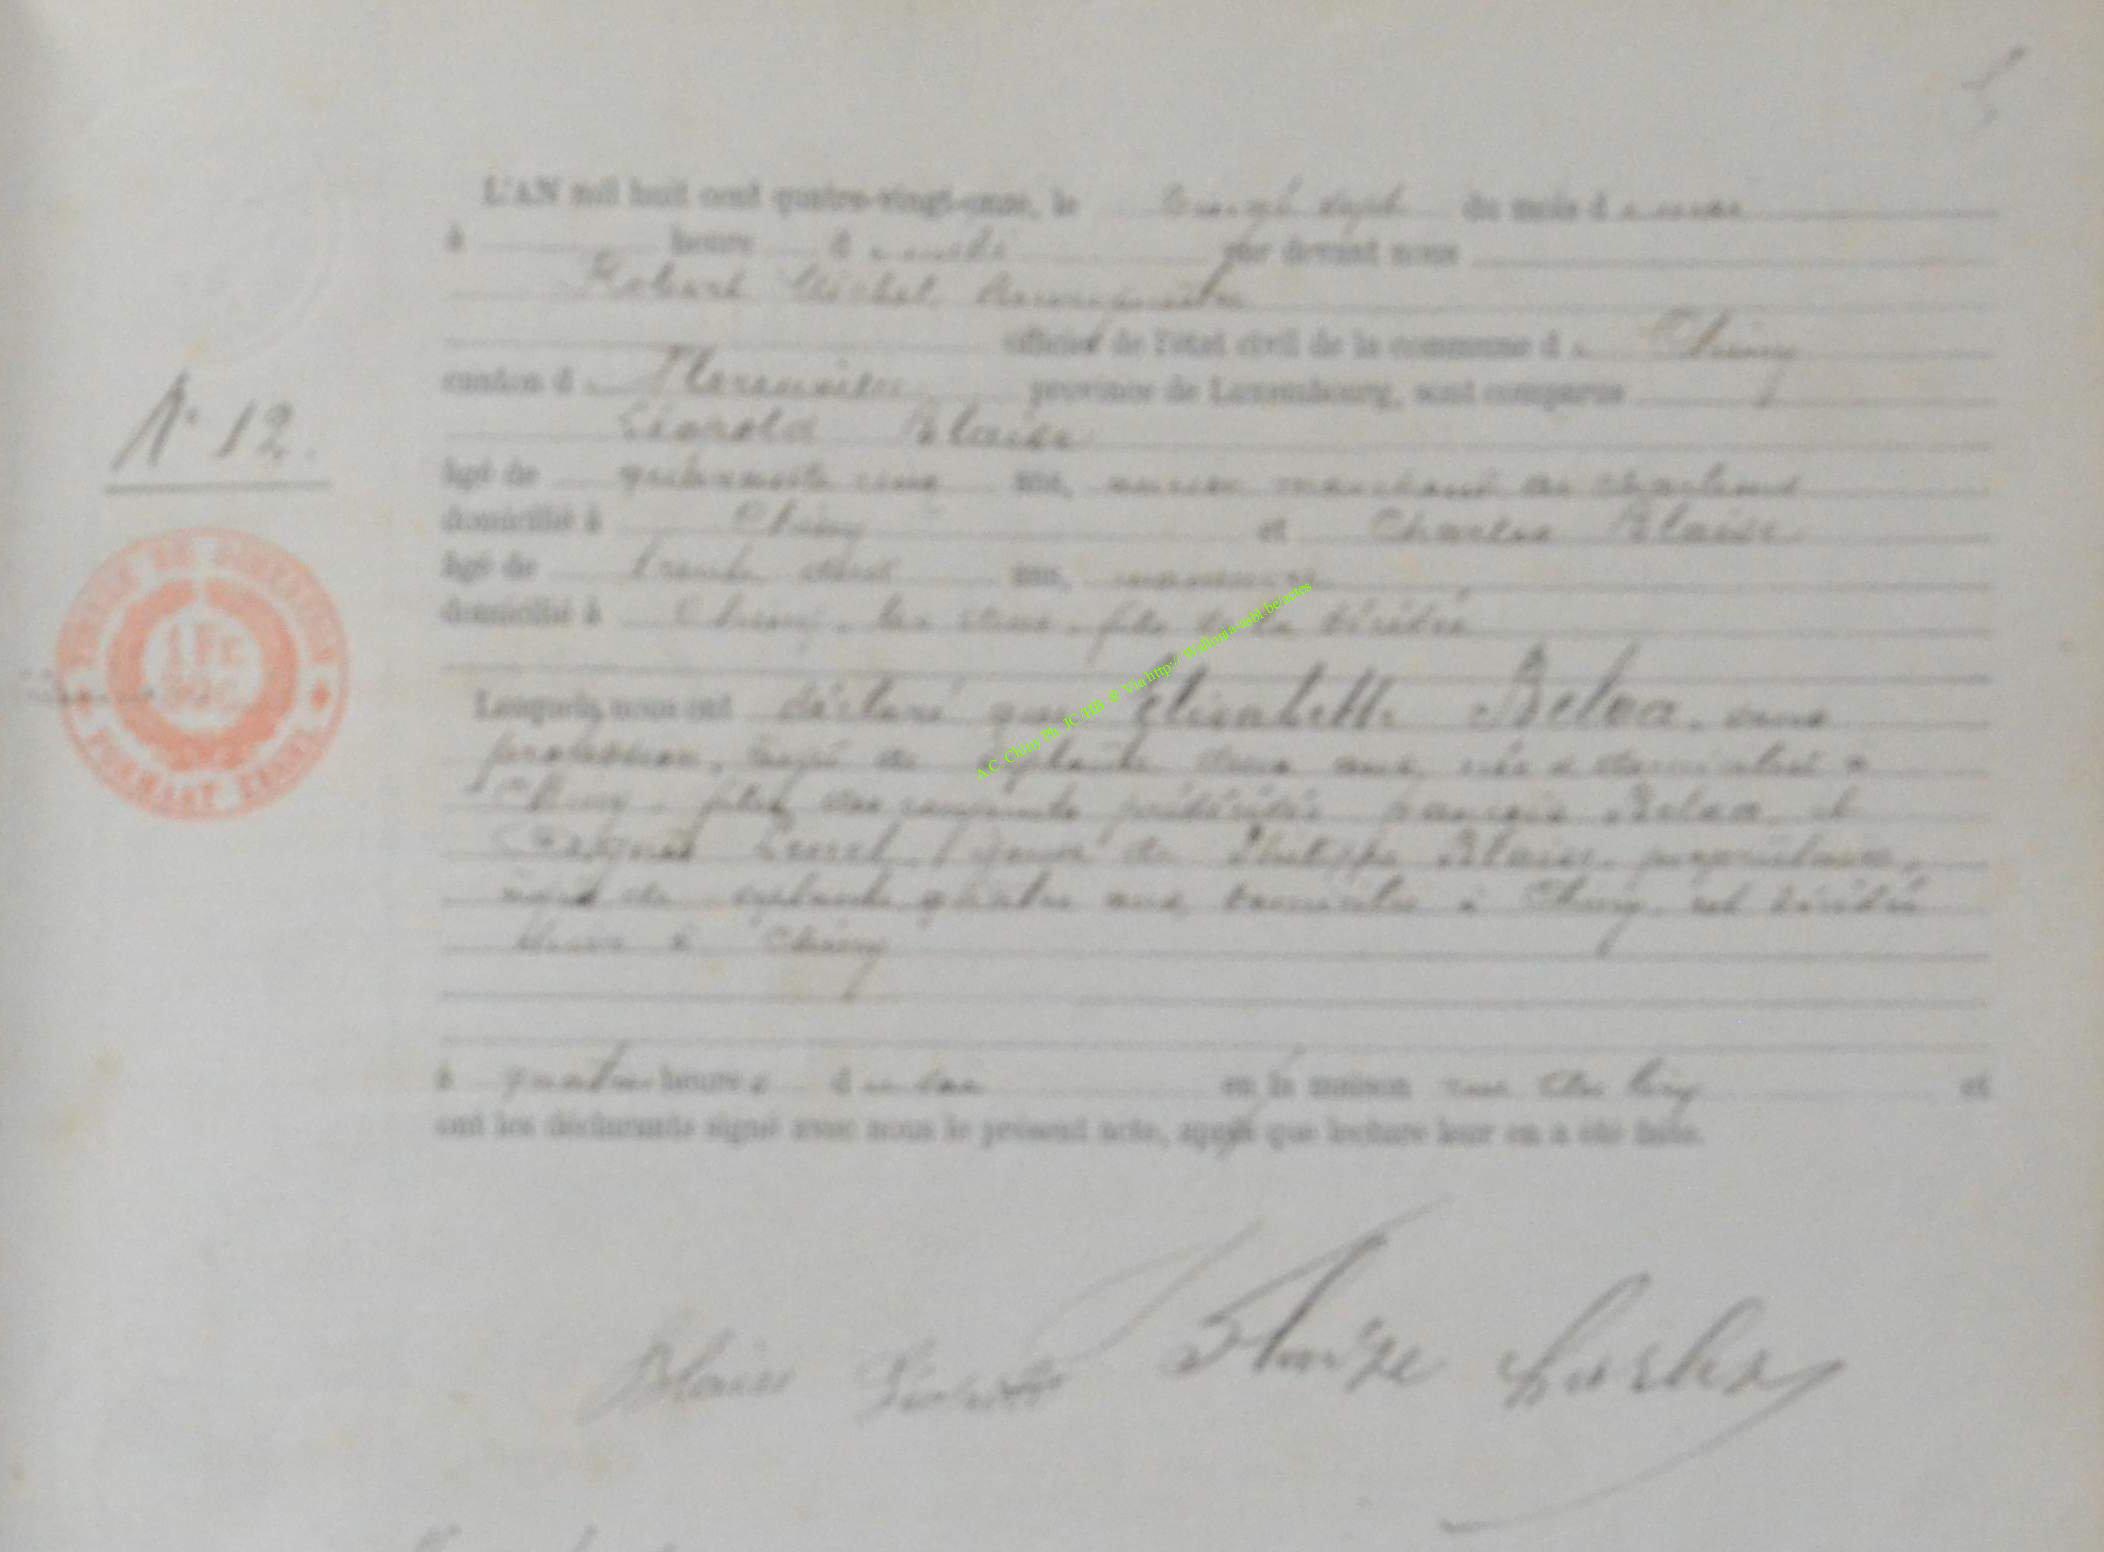 L'AN mil huit cent quatre-vingt-onze, le vingt sept du mois de mars
à heure de midi par devant nous
Robert Michel
officier de l'état civil de la commune de Chiny
canton de Florenville province de Luxembourg, sont comparus
Léopold Blaise
âgé de quarante cinq ans, ancien marchand de charbons
domicilié à Chiny et Charles Blaise
âgé de trente deux ans, manoeuvre
domicilié à Chiny, les deux fils de la décédée
Lesquels nous ont déclaré que Elisabeth Beloa, sans
profession, âgée de septante deux ans, née & domiciliée à
Chiny, fille des conjoints prédécédés François Beloa et
épouse de Philippe Blaise, propriétaire,
âgé de septante quatre ans, domicilié à Chiny, est décédée
à Chiny
à quatre heures du en la maison rue et
ont les déclarants signé avec nous le présent acte, après que lecture leur en a été faite.
N° 12.
TIMBRE DE DIMENSION
1 FR
FORMANT
A.C. Chiny Ph. JC HB © Via http:// Wallonia-asbl.be/actes
Blaise Léopold Blaise Charles